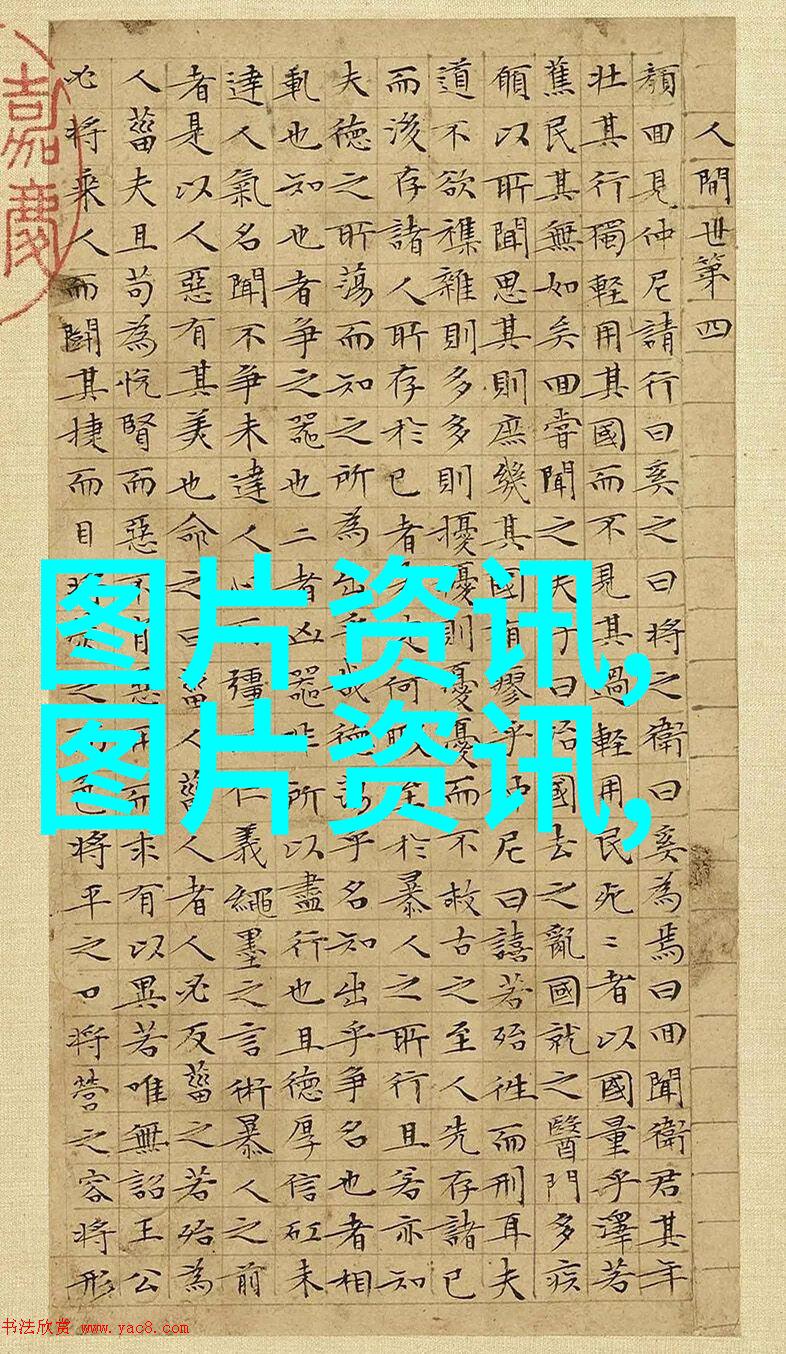 人間世第四
顏囬見仲尼請行曰奚之曰將之衛曰奚為焉曰囬聞衛君其年
壯其行獨輕用其國而不見其過輕用民死〻者以國量乎澤若
蕉民其無如矣囬甞聞之夫子曰治國去之亂國就之醫門多疾
願以所聞思其則庶幾其國有瘳乎仲尼曰譆若殆往而刑耳夫
道不欲襍雜則多多則擾擾則憂憂而不救古之至人先存諸已
而後存諸人所存於已者未定何暇至於暴人之所行且若亦知
夫德之所蕩而知之所為出乎哉德蕩乎名知出乎爭名也者相
軋也知也者爭之器也二者凶器非所以盡行也且德厚信矼未
達人氣名聞不爭未達人心而彊以仁義繩墨之言術暴人之前
者是以人惡有其美也命之曰菑人菑人者人必反菑之若殆為
人菑夫且苟為悅賢而惡不肖惡用而求有以異若唯無詔王公
必將乘人而鬭其捷而目將熒之而色將平之口將營之容將形
嘉慶
图片资讯,
图片资讯,
书法欣赏 www.yac8.com